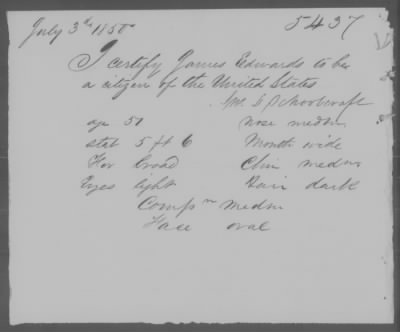 July 3rd 1850 5437
I certify James Edwards to be
a citizen of the United States
Wm. S Schoolcraft
age 51 nose medm
stat 5 ft 6 Mouth wide
For broad Chin medm
Eyes light Hair dark
Compn medm
Face oval